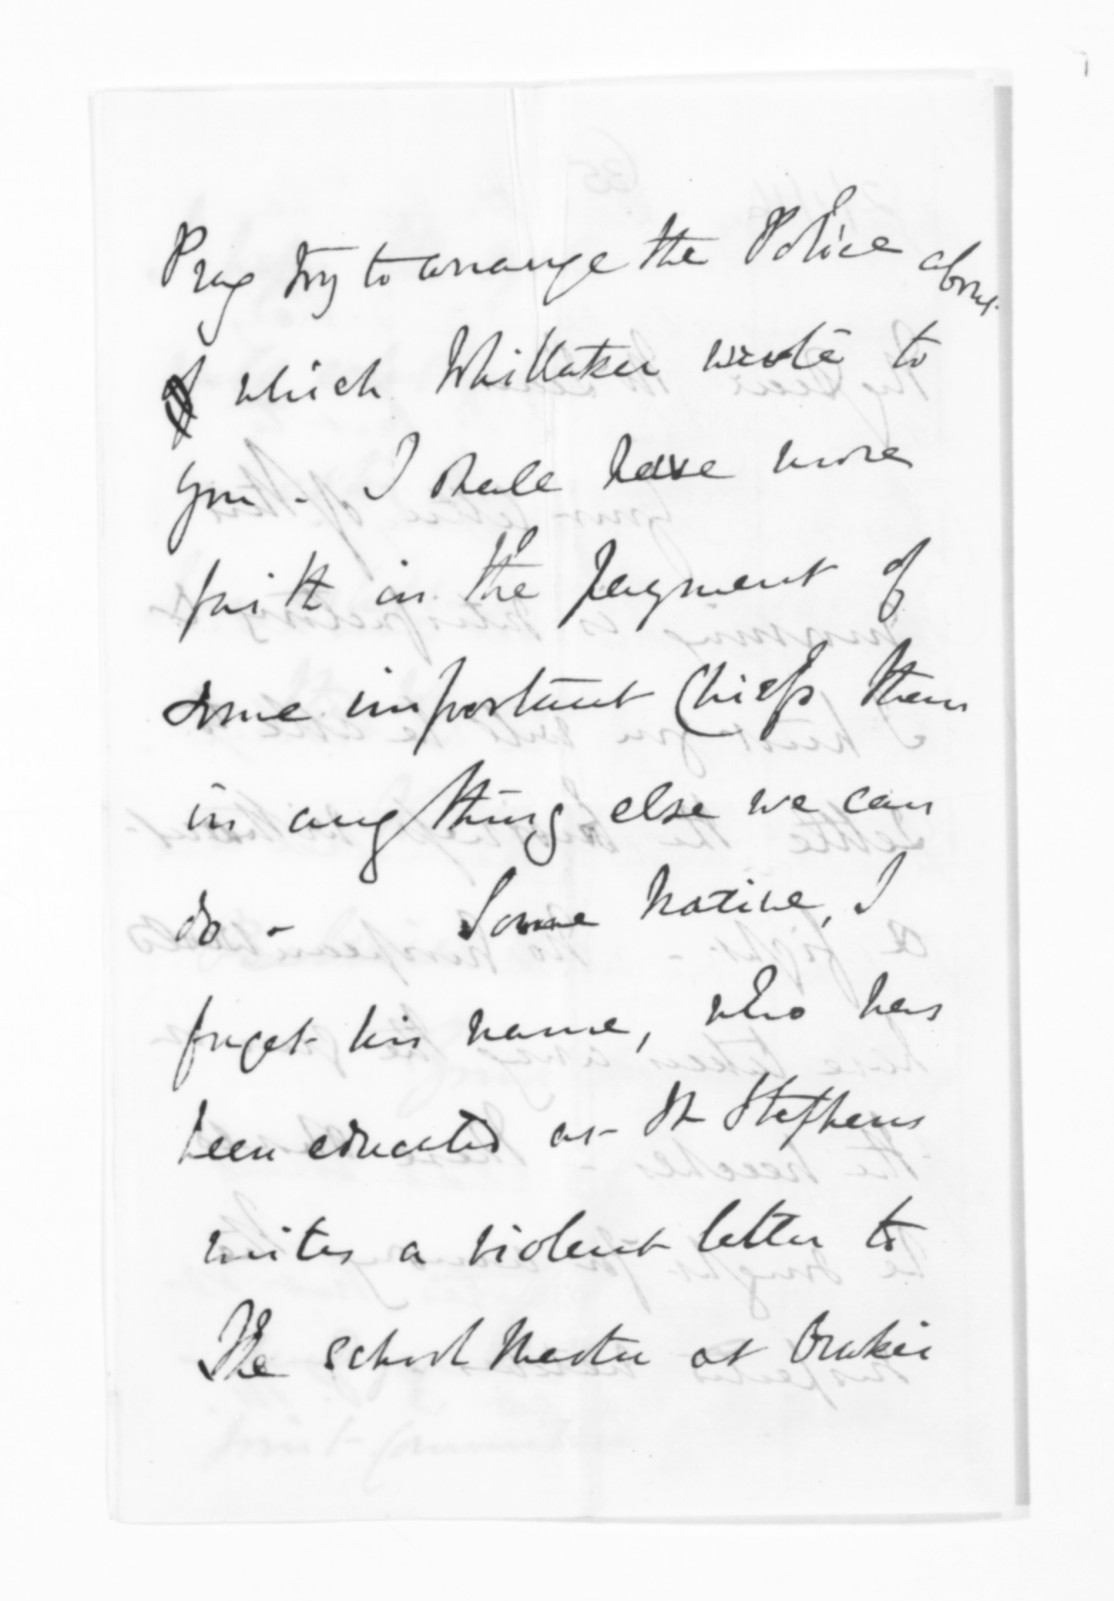 Pray try to arrange the Police about
which Whitaker wrote to
you - I shall have more
faith in the payment of
some important Chiefs than
in any thing else we can
do - Some native, I
forget his name, who has
been educated at St Stephens
writes a violent letter to
the school Master at Orakei